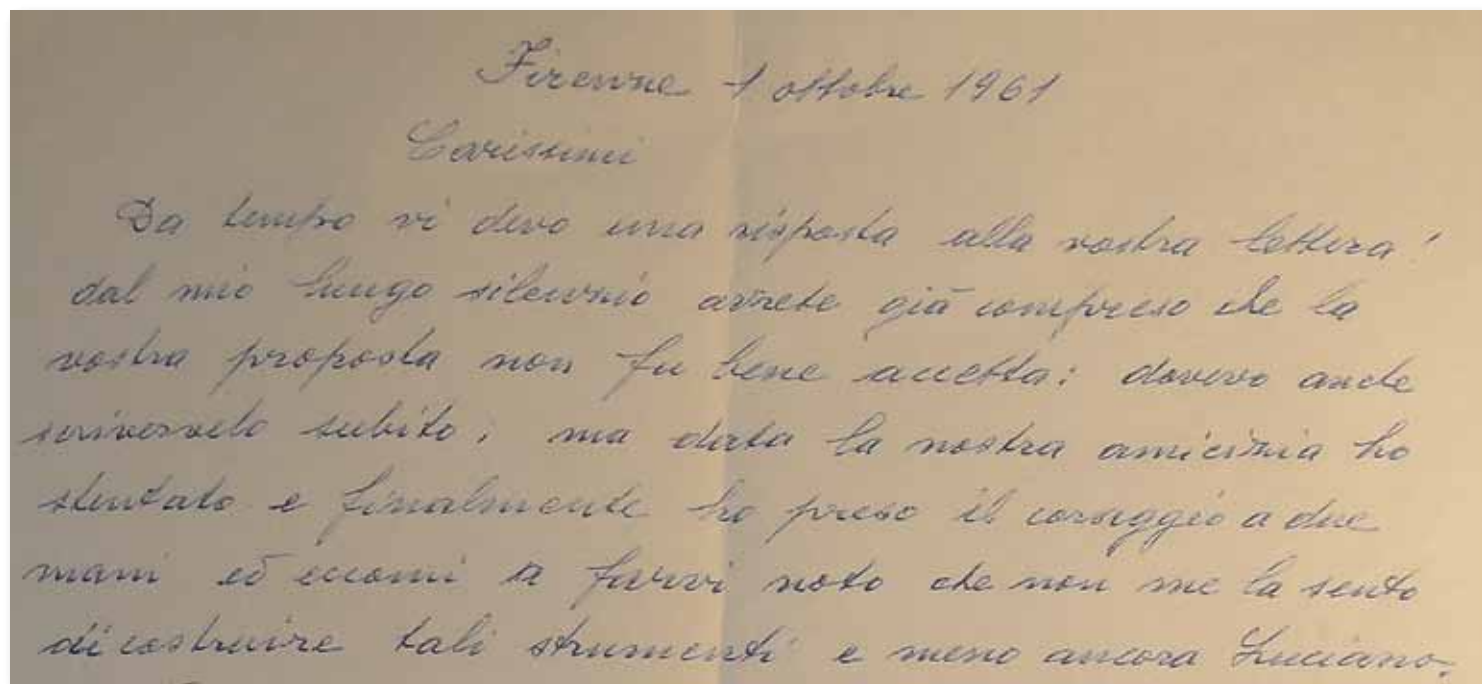 Firenze 1 ottobre 1961
Carissimi
Da tempo vi devo una risposta alla vostra lettera!
dal mio lungo silenzio avrete già compreso che la
vostra proposta non fu bene accetta: dovevo anche
scrivervelo subito; ma data la nostra amicizia ho
stentato e finalmente ho preso il coraggio a due
mani ed eccomi a farvi noto che non me la sento
di costruire tali strumenti e meno ancora Luciano.